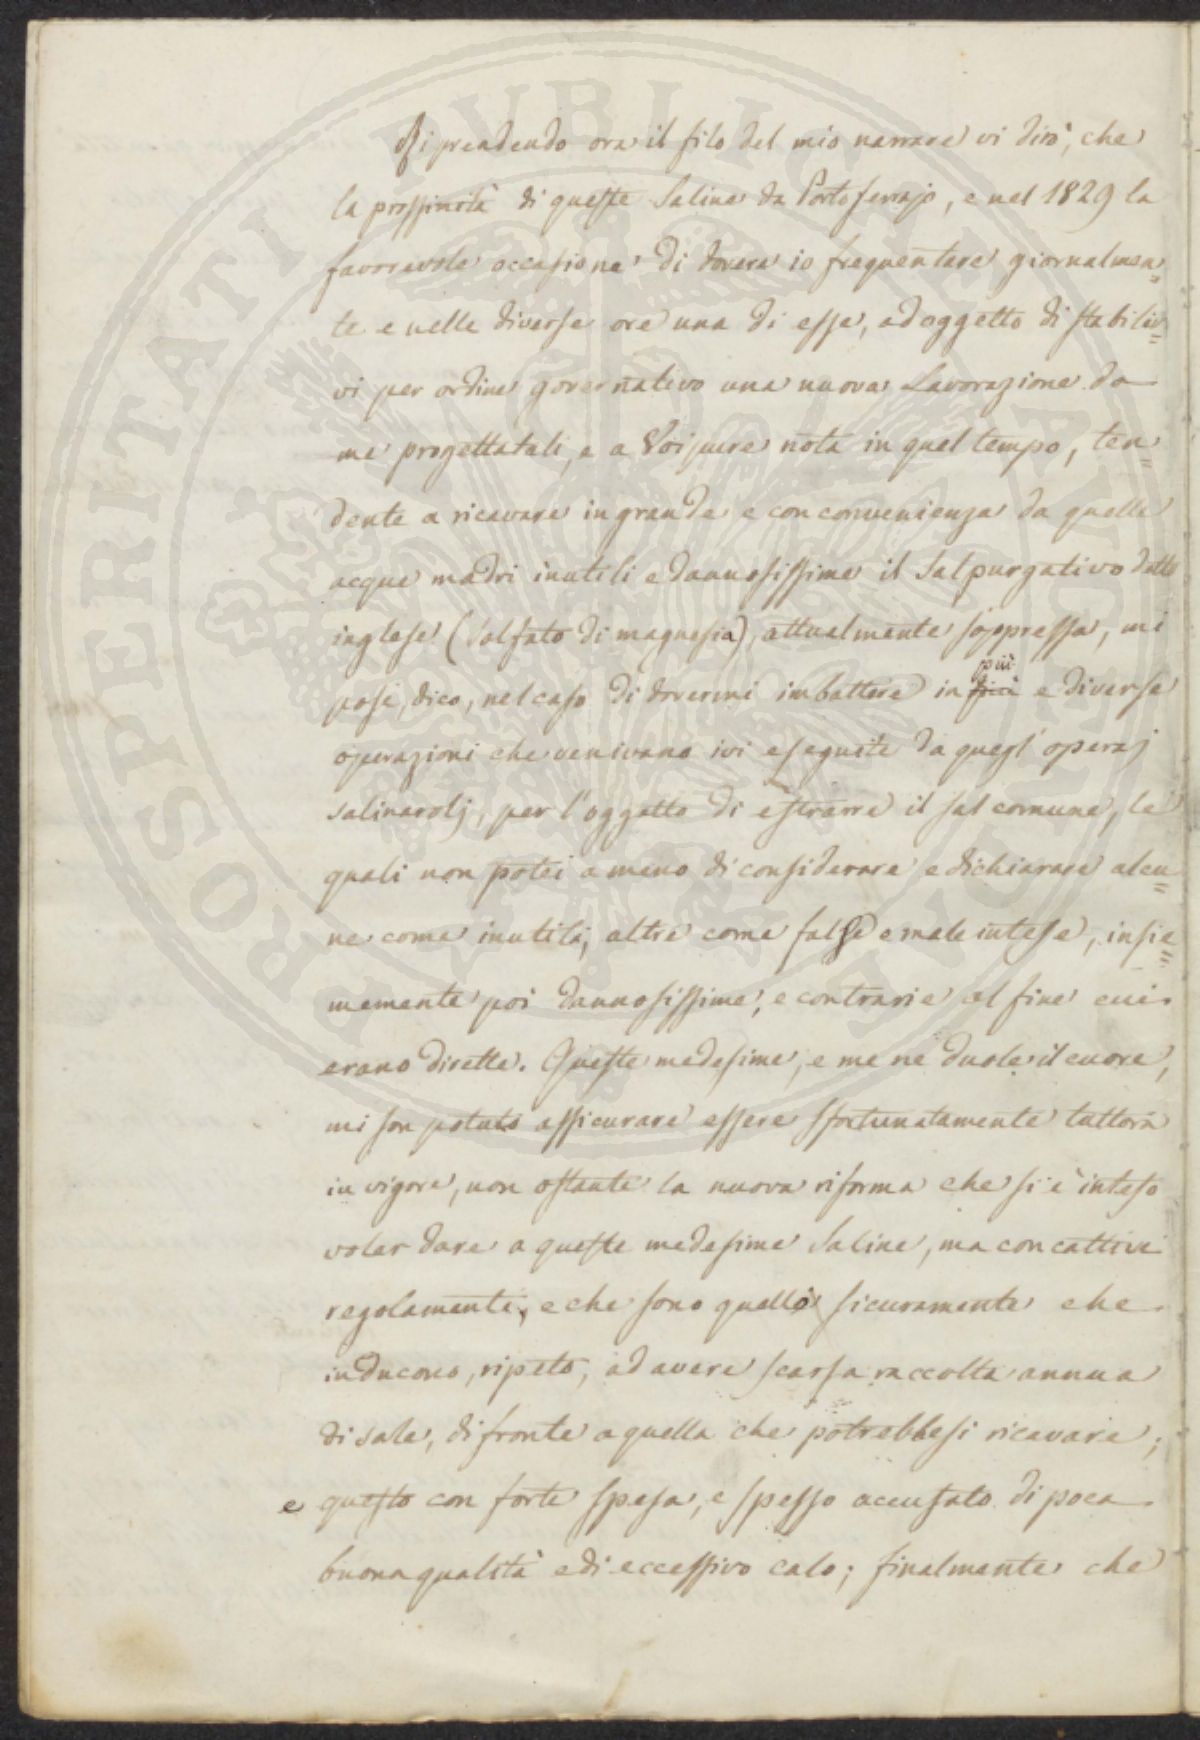 Riprendendo ora il filo del mio narrare vi dirò, che
la prossimità di queste Saline da Portoferrajo, e nel 1829 la
favorevole occasione di dovere io frequentare giornalmen=
te e nelle diverse ore una di esse, ad oggetto di stabilir=
vi per ordine governativo una nuova Lavorazione da
me progettatali, e a Voi pure nota in quel tempo, ten=
dente a ricavare in grande e con convenienza da quelle
acque madri inutili e dannosissime il Sal purgativo detto
inglese (Solfato di magnesia), attualmente soppressa, mi
pose, dico, nel caso di dovermi imbattere in più e diverse
operazioni che venivano ivi eseguite da quegl'operaj
salinarolj, per l'oggetto di estrarre il sal comune, le
quali non potei a meno di considerare e dichiarare alcu=
ne come inutili, altre come false e male intese, insie=
memente poi dannosissime, e contrarie al fine cui
erano dirette. Queste medesime, e me ne duole il cuore,
mi son potuto assicurare essere sfortunatamente tuttora
in vigore, non ostante la nuova riforma che si è inteso
voler dare a queste medesime Saline, ma con cattivi
regolamenti, e che sono quelli sicuramente che
inducono, ripeto, ad avere scarsa raccolta annua
di sale, di fronte a quella che potrebbesi ricavare;
e questo con forte spesa, e spesso accusato di poca
buona qualità e di eccessivo calo; finalmente che
PROSPERITATI PVBLICAE